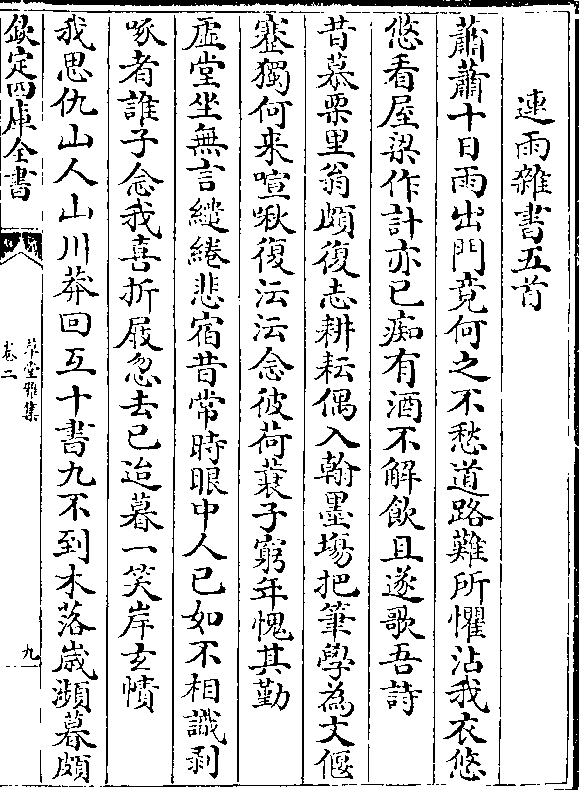 連雨雜書五首
蕭蕭十日雨出門竟何之不愁道路難所懼沾我衣悠
悠看屋梁作計亦已痴有酒不解飲且遂歌吾詩
昔慕栗里翁頗復志耕耘偶入翰墨場把筆學為文偃
蹇獨何来喧啾復沄沄念彼荷蓑子窮年愧其勤
虚堂坐無言繾綣悲宿昔常時眼中人已如不相識剥
啄者誰子念我喜折屐忽去已迨暮一笑岸玄幘
我思仇山人山川莽回互十書九不到木落歳頻暮頗
欽定四庫全書
草堂雅集
卷二
九